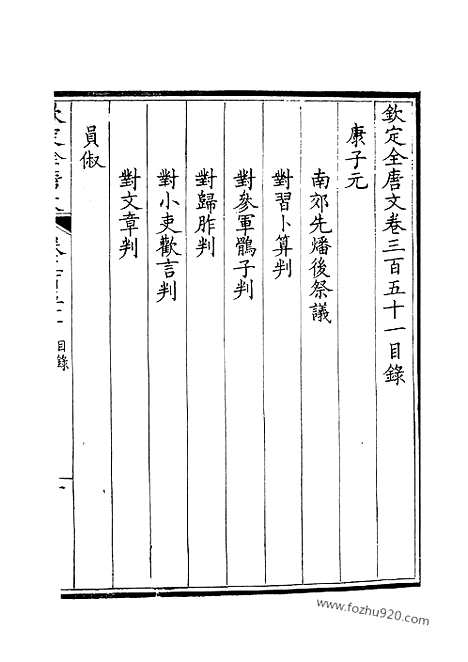 欽定全唐文卷三百五十一目錄
康子元
南郊先燔後祭議
對習卜算判
對參軍鶻子判
對歸胙判
對小吏歡言判
對文章判
員俶
目錄
www.fozhu920.com